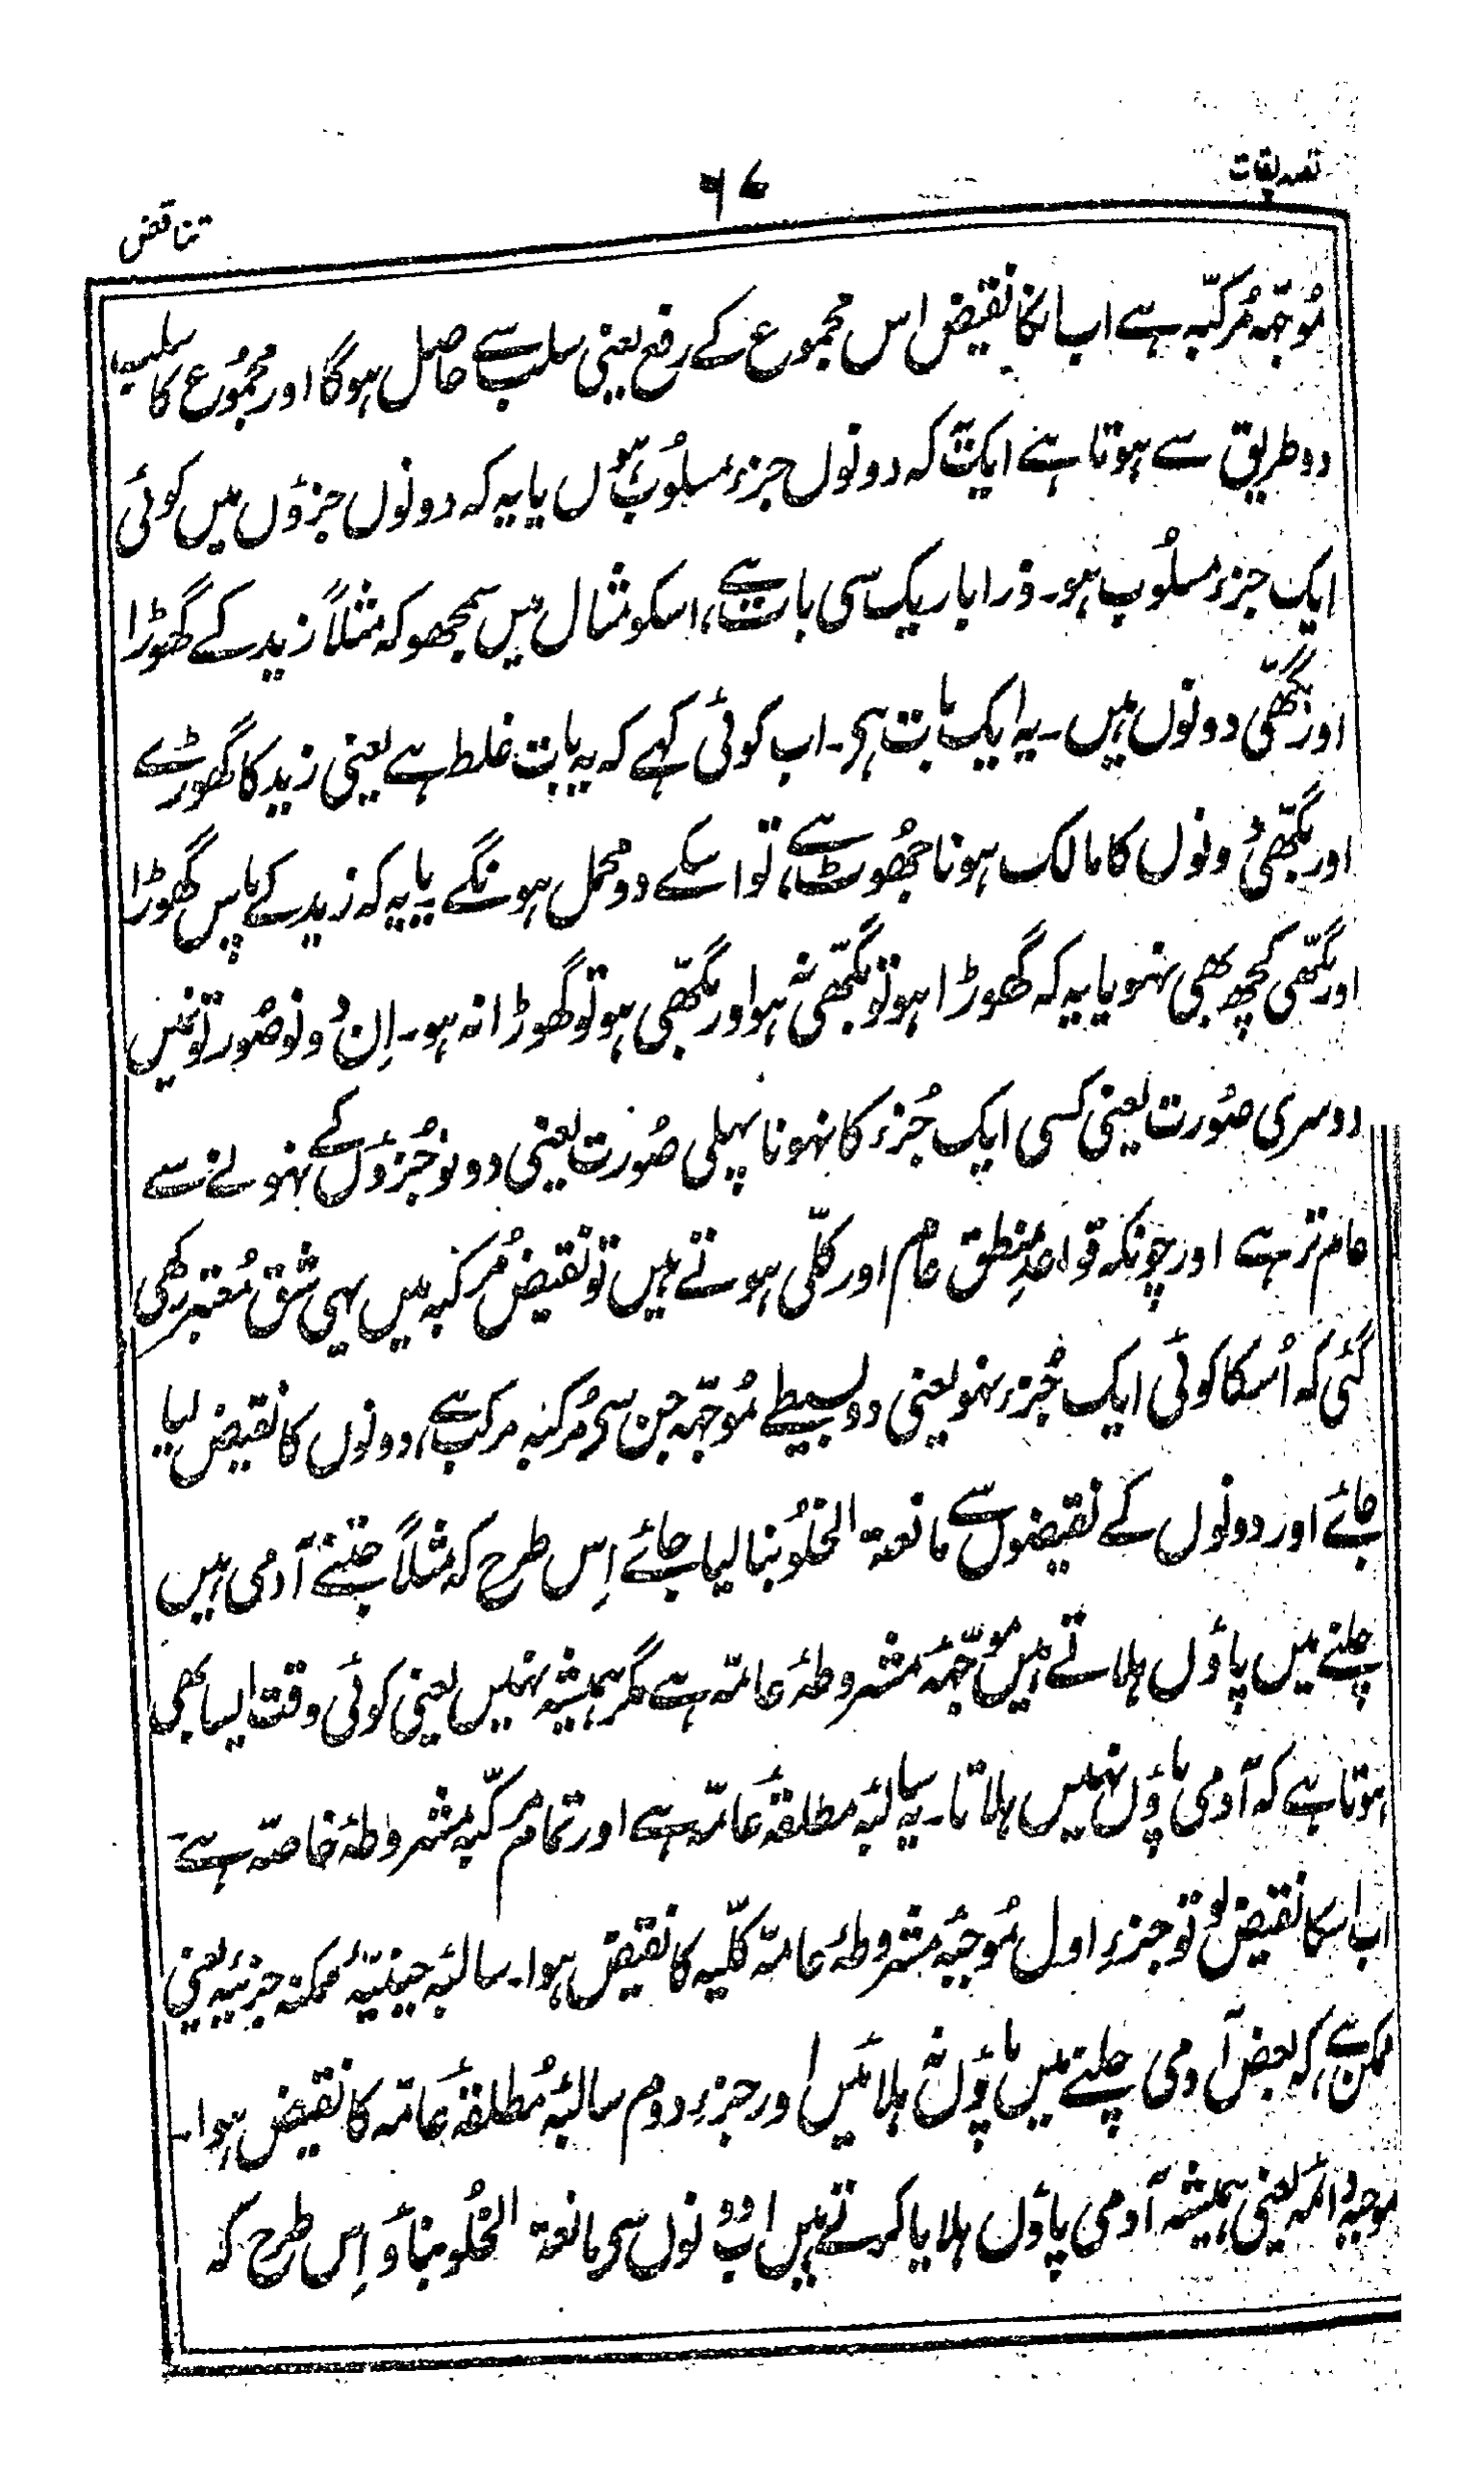 تصدیقات
۶۷
تناقض
مُوجّہ مُرکبّہ ہے اب انکا نقیض اس مجموع کے رفع یعنی سلب سے حاصل ہوگا اور مجموُع کا سلب
دو طریق سے ہوتا ہے ایک کہ دونوں جزء مسلوُب ہوں یا یہ کہ دونوں جزؤں میں کوئی
ایک جزء مسلوُب ہو۔ ذرا باریک سی بات ہے، اسکو مثال میں سمجھو کہ مثلاً زید کے گھوڑا
اور بگھّی دونوں ہیں۔ یہ ایک بات ہی۔ اب کوئی کہے کہ یہ بات غلط ہے یعنی زید کا گھوڑے
اور بگھّی دونوں کا مالک ہونا جھُوٹ ہے، تو اسکے دو محمل ہونگے یا یہ کہ زید کے پاس گھوڑا
اور بگھّی کچھ بھی نہو یا یہ کہ گھوڑا ہو تو بگھّی نہ ہو اور بگھّی ہو تو گھوڑا نہ ہو۔ اِن دونو صُورتونمیں
دوسری صُورت یعنی کسی ایک جُزء کا نہونا پہلی صُورت یعنی دونو جُزؤں کے نہونے سے
عام تر ہے اور چونکہ قواعدِ منطق عام اور کلّی ہوتے ہیں تو نقیض مُرکبہ میں یہی شق مُعتبر رکھی
گئی کہ اُسکا کوئی ایک جُزء نہو یعنی دو بسیطے مُوجّہہ جن سی مُرکبہ مرکب ہے، دونوں کا نقیض لیا
جائے اور دونوں کے نقیضوں سے مانعۃ الخلوُ بنا لیا جائے اِس طرح کہ مثلاً جتنے آدمی ہیں
چلنے میں پاؤں ہلاتے ہیں موجّبہٴ مشروطۂ عامّہ ہے مگر ہمیشہ نہیں یعنی کوئی وقت ایسا بھی
ہوتا ہے کہ آدمی پاؤں نہیں ہلاتا۔ یہ سالبہٴ مطلقۂ عامّہ ہے اور تمام مرکّبہ مشروطۂ خاصّہ ہے
اب اسکا نقیض لو تو جزءِ اول مُوجبہٴ مشروطۂ عامّہ کلّیہ کا نقیض ہوا۔ سالبہٴ حینیّہٴ ممکنہ جزئیہ یعنی
ممکن ہے، کہ بعض آدمی چلنے میں پاؤں نہ ہلائیں اور جزءِ دوم سالبہٴ مُطلقۂ عامّہ کا نقیض ہوا۔
موجبہ دائمہ یعنی ہمیشہ آدمی پاؤں ہلایا کرتے ہیں اب دونوں سی مانعۃ الخلُو بناؤ اِس طرح کہ